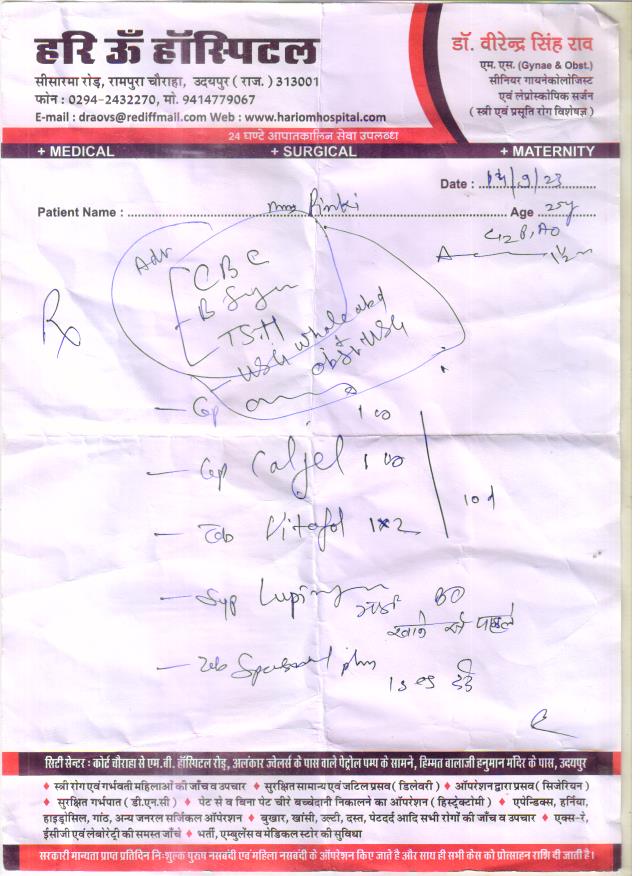 हरि ऊँ हॉस्पिटल
सीसारमा रोड़, रामपुरा चौराहा, उदयपुर ( राज. ) 313001
फोन : 0294-2432270, मो. 9414779067
E-mail : draovs@rediffmail.com Web : www.hariomhospital.com
डॉ. वीरेन्द्र सिंह राव
एम. एस. (Gynae & Obst.)
सीनियर गायनेकोलोजिस्ट
एवं लेप्रोस्कोपिक सर्जन
( स्त्री एवं प्रसूति रोग विशेषज्ञ )
24 घण्टे आपातकालिन सेवा उपलब्ध
+ MEDICAL + SURGICAL + MATERNITY
Date : 14/9/23
Patient Name : Mrs Pinki Age 25y
G2P1A0
A 1½m
Adv
CBC
Rx
TSH
USG whole abd
& obst USG
Cap
1 OD
Cap Caljel 1 OD
10 d
Tab Vitofol 1x2
Syp BD
खाने से पहले
Tab
सिटी सेन्टर : कोर्ट चौराहा से एम.बी. हॉस्पिटल रोड़, अलंकार ज्वेलर्स के पास वाले पेट्रोल पम्प के सामने, हिम्मत बालाजी हनुमान मंदिर के पास, उदयपुर
♦ स्त्री रोग एवं गर्भवती महिलाओं की जाँच व उपचार ♦ सुरक्षित सामान्य एवं जटिल प्रसव ( डिलेवरी ) ♦ ऑपरेशन द्वारा प्रसव ( सिजेरियन )
♦ सुरक्षित गर्भपात ( डी.एन.सी ) ♦ पेट से व बिना पेट चीरे बच्चेदानी निकालने का ऑपरेशन ( हिस्ट्रेक्टोमी ) ♦ एपेन्डिक्स, हर्निया,
हाइड्रोसिल, गांठ, अन्य जनरल सर्जिकल ऑपरेशन ♦ बुखार, खांसी, उल्टी, दस्त, पेटदर्द आदि सभी रोगों की जाँच व उपचार ♦ एक्स-रे,
ईसीजी एवं लेबोरेट्री की समस्त जाँचे ♦ भर्ती, एम्बुलेंस व मेडिकल स्टोर की सुविधा
सरकारी मान्यता प्राप्त प्रतिदिन निःशुल्क पुरुष नसबंदी एवं महिला नसबंदी के ऑपरेशन किए जाते है और साथ ही सभी केस को प्रोत्साहन राशि दी जाती है।